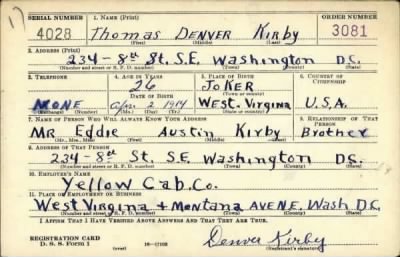 SERIAL NUMBER 1. NAME (Print) ORDER NUMBER
4028 Thomas DENVER Kirby 3081
(First) (Middle) (Last)
2. ADDRESS (Print)
234-8th St. S.E. Washington D.C.
(Number and street or R. F. D. number) (Town) (County) (State)
3. TELEPHONE 4. AGE IN YEARS 5. PLACE OF BIRTH 6. COUNTRY OF CITIZENSHIP
26 JoKER
(Town or county)
NONE Apr. 2 1914 WEST. Virginia U.S.A.
7. NAME OF PERSON WHO WILL ALWAYS KNOW YOUR ADDRESS 9. RELATIONSHIP OF THAT PERSON
MR Eddie Austin Kirby Brother
(Mr., Mrs., Miss) (First) (Middle) (Last)
8. ADDRESS OF THAT PERSON
234-8th St. S.E. Washington D.C.
(Number and street or R. F. D. number) (Town) (County) (State)
10. EMPLOYER'S NAME
Yellow Cab. Co.
11. PLACE OF EMPLOYMENT OR BUSINESS
WEST Virginia + Montana AVENE. Wash D.C.
(Number and street or R. F. D. number) (Town) (County) (State)
I AFFIRM THAT I HAVE VERIFIED ABOVE ANSWERS AND THAT THEY ARE TRUE.
REGISTRATION CARD
D. S. S. Form 1 (over) 16-17105 Denver Kirby
(Registrant's signature)